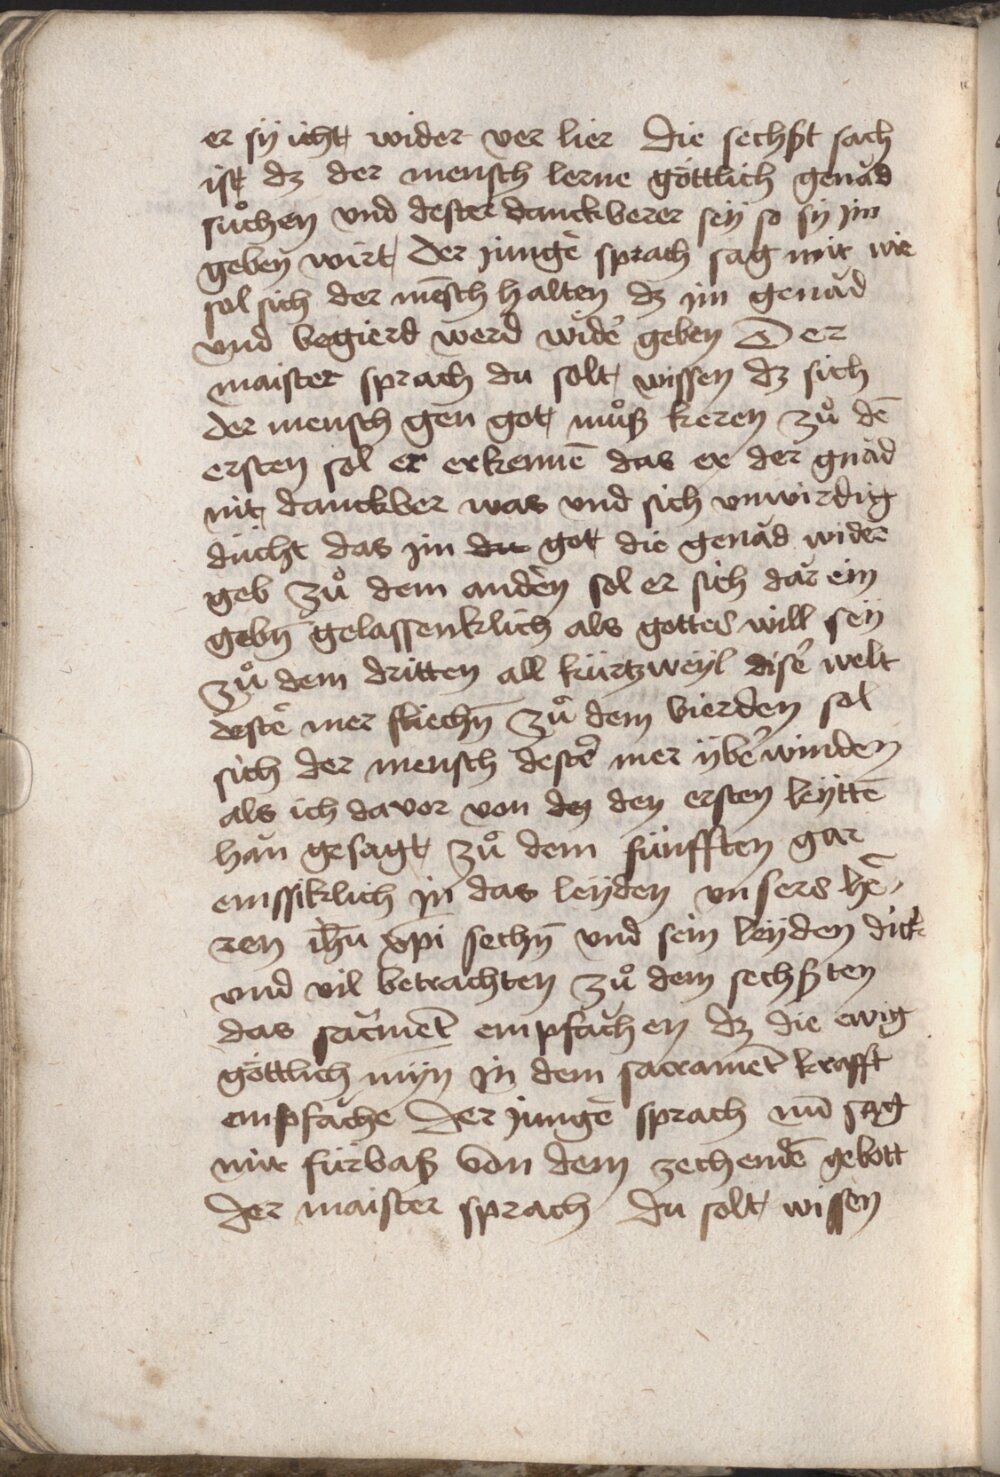 er sÿ icht wider ver lier die sechßt sach
ist dz der mensch lerne göttlich genǎd
sůchen vnd dester danckberer seÿ so sÿ jm
geben wirt der junge sprach sag mir wie
sol sich der mēsch halten dz jm genǎd
vnd begierd werd wider̉ geben Der
maister sprach du solt wissen dz sich
der mensch gen got můß keren zů dē
ersten sol er erkennē das er der gnǎd
nit danckber was vnd sich vnwirdig
dücht das jm du got die genǎd wider
geb zů dem andern sol er sich dar ein
gebn̄ gelassenklich als gottes will seÿ
zů dem dritten all kürtzweÿl diser̉ welt
dester̉ mer fliechn̄ zů dem vierden sol
sich der mensch dester̉ mer ÿber̉winden
als ich davor von den den ersten leÿttē
han gesagt zů dem fünfften gar
emssiklich jn das leÿden vnsers her̄
ren ih̄u xp̄i sechn̄ vnd sein leÿden dick
vnd vil betrachten zů dem sechßten
das sacr̉met̄ empfǎchen dz die ewig
göttlich mÿn jn dem sacramet̄ krafft
empfache der junge sprach nū sag
mir fürbaß von dem zechendē gebott
der maister sprach du solt wissen